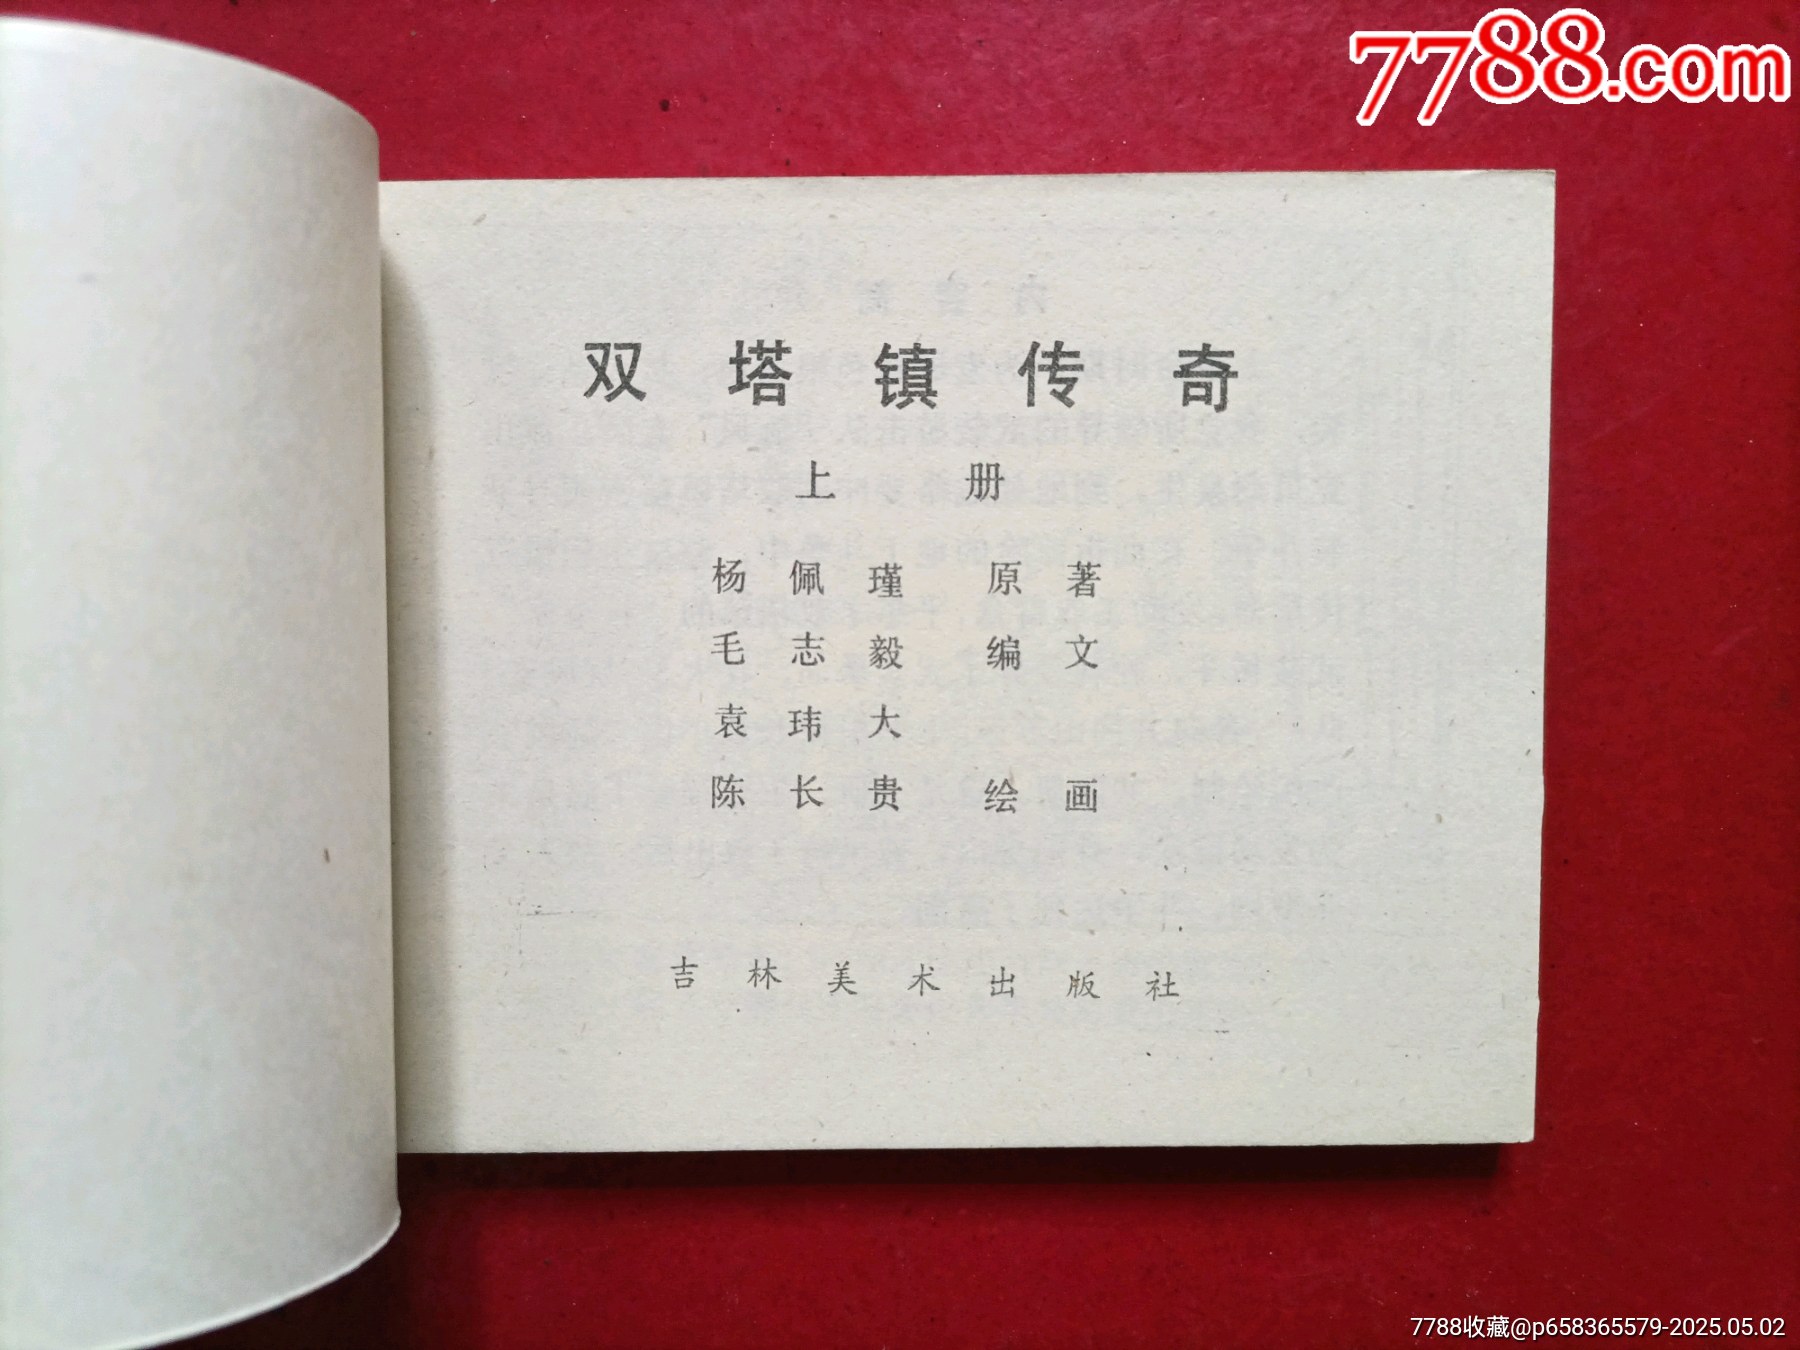 7788.com
双塔镇传奇
上册
杨佩瑾 原著
毛志毅 编文
袁玮大
陈长贵 绘画
吉林美术出版社
7788收藏@p658365579-2025.05.02